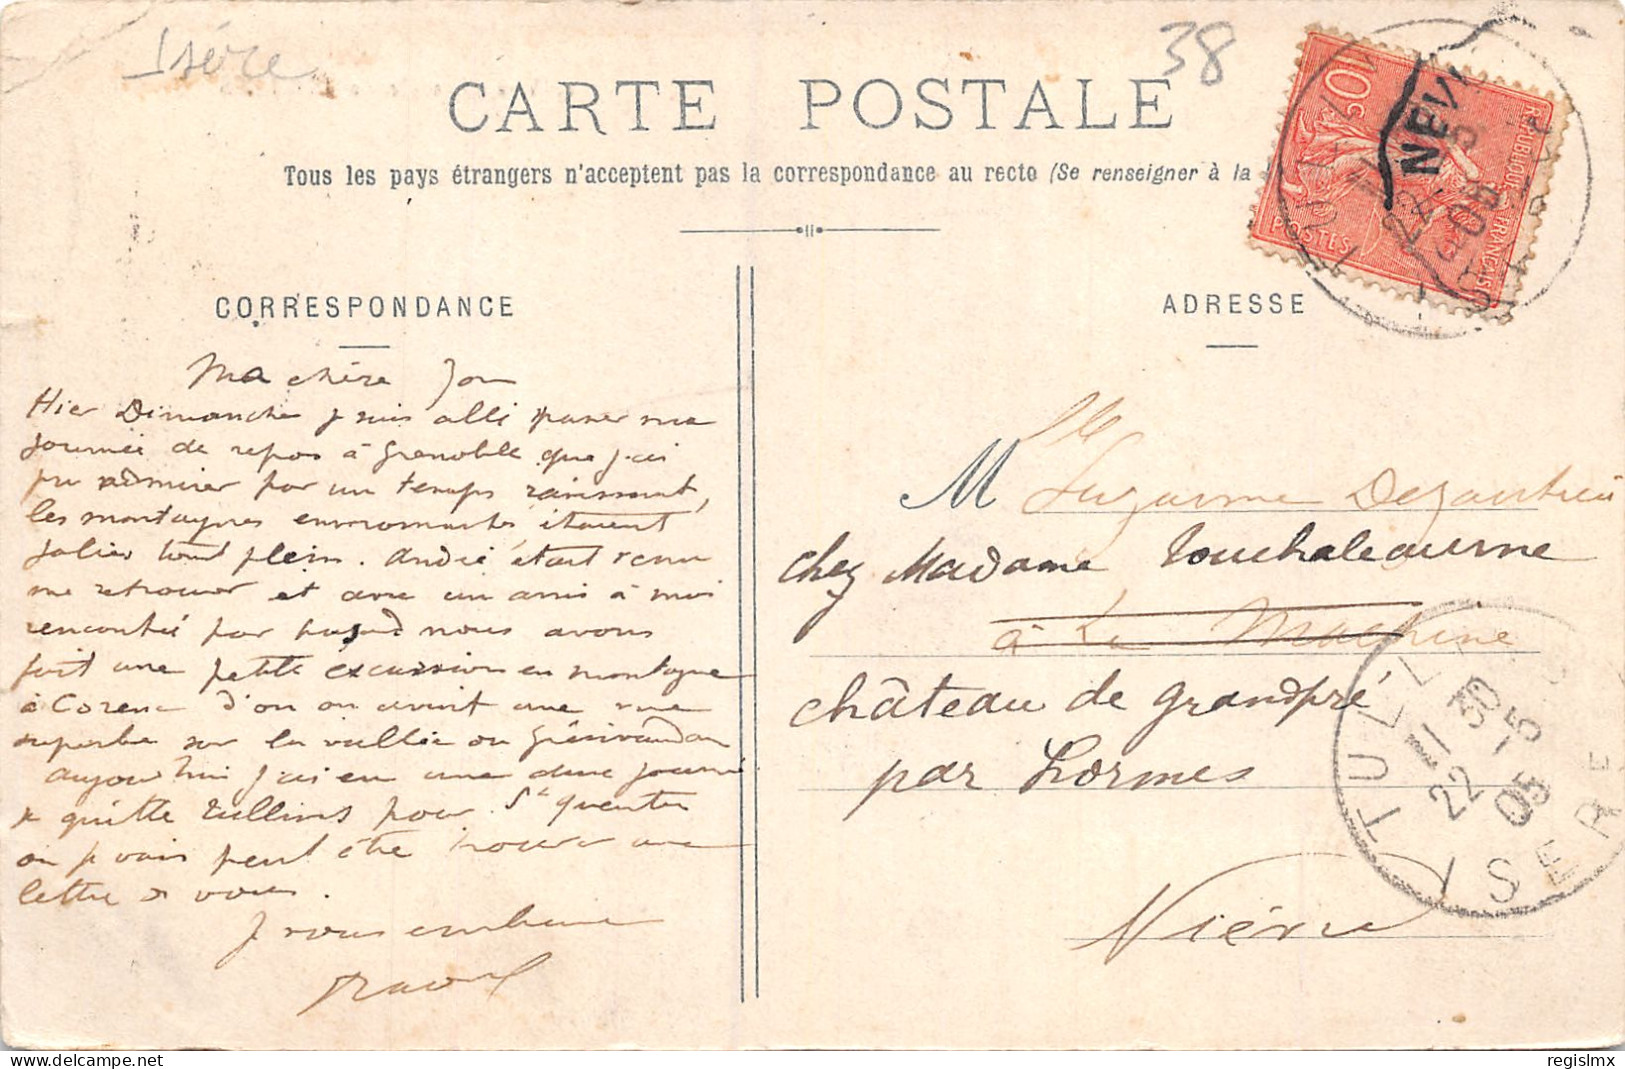 Isère
38
CARTE POSTALE
Tous les pays étrangers n'acceptent pas la correspondance au recto (Se renseigner à la
10c
RÉPUBLIQUE FRANÇAISE
POSTES
NEV
TULLINS
22 -5
05
ISERE
CORRESPONDANCE
ADRESSE
Ma chère
Hier Dimanche je suis allé passer ma
journée de repos à Grenoble que j'ai
pu admirer par un temps ravissant,
les montagnes environnantes étaient
jolies tout plein. André était venu
me retrouver et avec un ami à moi
rencontré par hasard nous avons
fait une petite excursion en montagne
à Corenc d'où on avait une vue
superbe sur la vallée du Grésivaudan
aujourd'hui j'ai eu une dure journée
je quitte Tullins pour St Quentin
où je vais peut être trouver une
lettre de vous.
Je vous embrasse
Raoul
Mlle Suzanne Dezautrieu
chez Madame Touchaleaume
à La Machine
château de Grandpré
par Lormes
Nièvre
TULLINS
11 30
22 -5
05
ISERE
regislmx